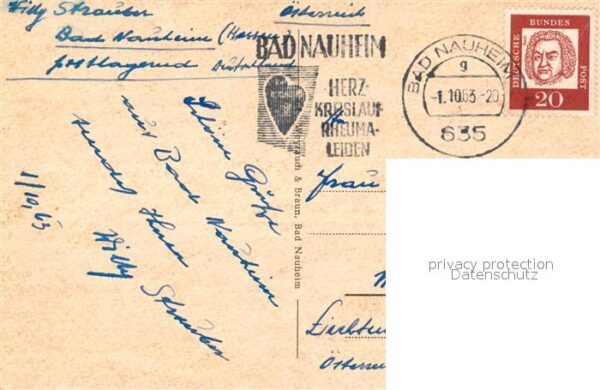 Willy Strauber
Bad Nauheim (Hessen)
postlagernd Deutschland
Österreich
BAD NAUHEIM
HERZ-
KREISLAUF-
RHEUMA-
LEIDEN
BAD NAUHEIM
g
-1.10.63-20
635
DEUTSCHE BUNDES POST
20
1/10 63
Schöne Grüße
aus Bad Nauheim
sendet Ihnen
Willy Strauber
& Braun, Bad Nauheim
An
Frau
privacy protection
Datenschutz
Österrei